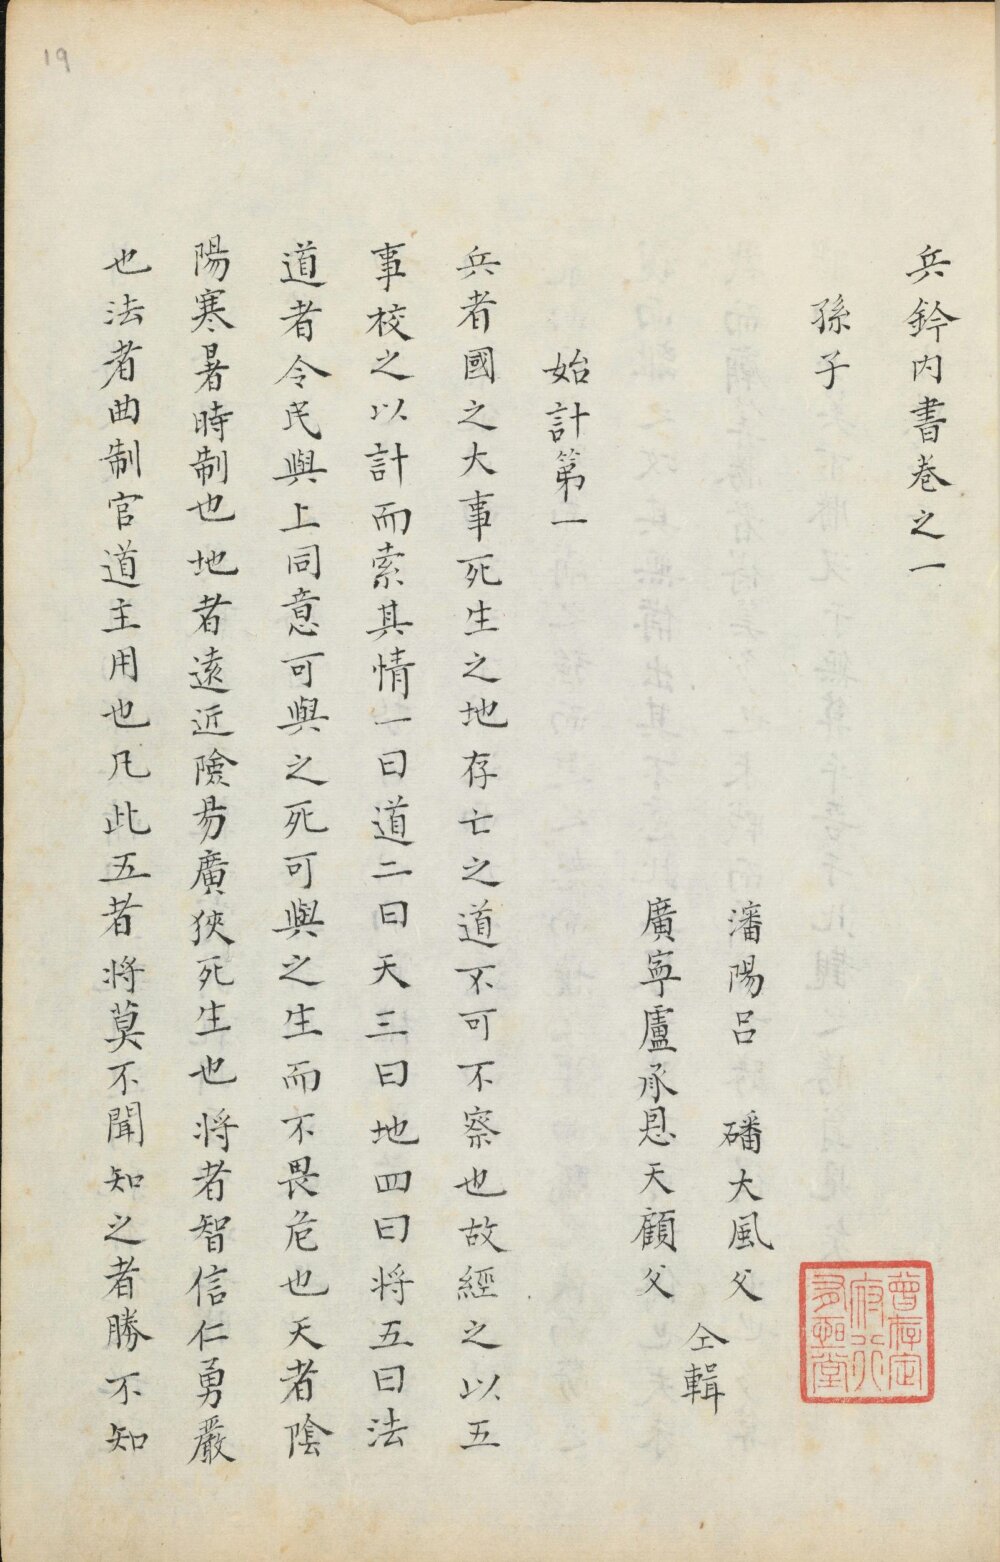 19
兵鈐內書卷之一
孫子
瀋陽呂 磻大風父
廣寧盧承恩天顧父
仝輯
始計第一
兵者國之大事死生之地存亡之道不可不察也故經之以五
事校之以計而索其情一曰道二曰天三曰地四曰將五曰法
道者令民與上同意可與之死可與之生而不畏危也天者陰
陽寒暑時制也地者遠近險易廣狹死生也將者智信仁勇嚴
也法者曲制官道主用也凡此五者將莫不聞知之者勝不知
曾存定
府行
堂